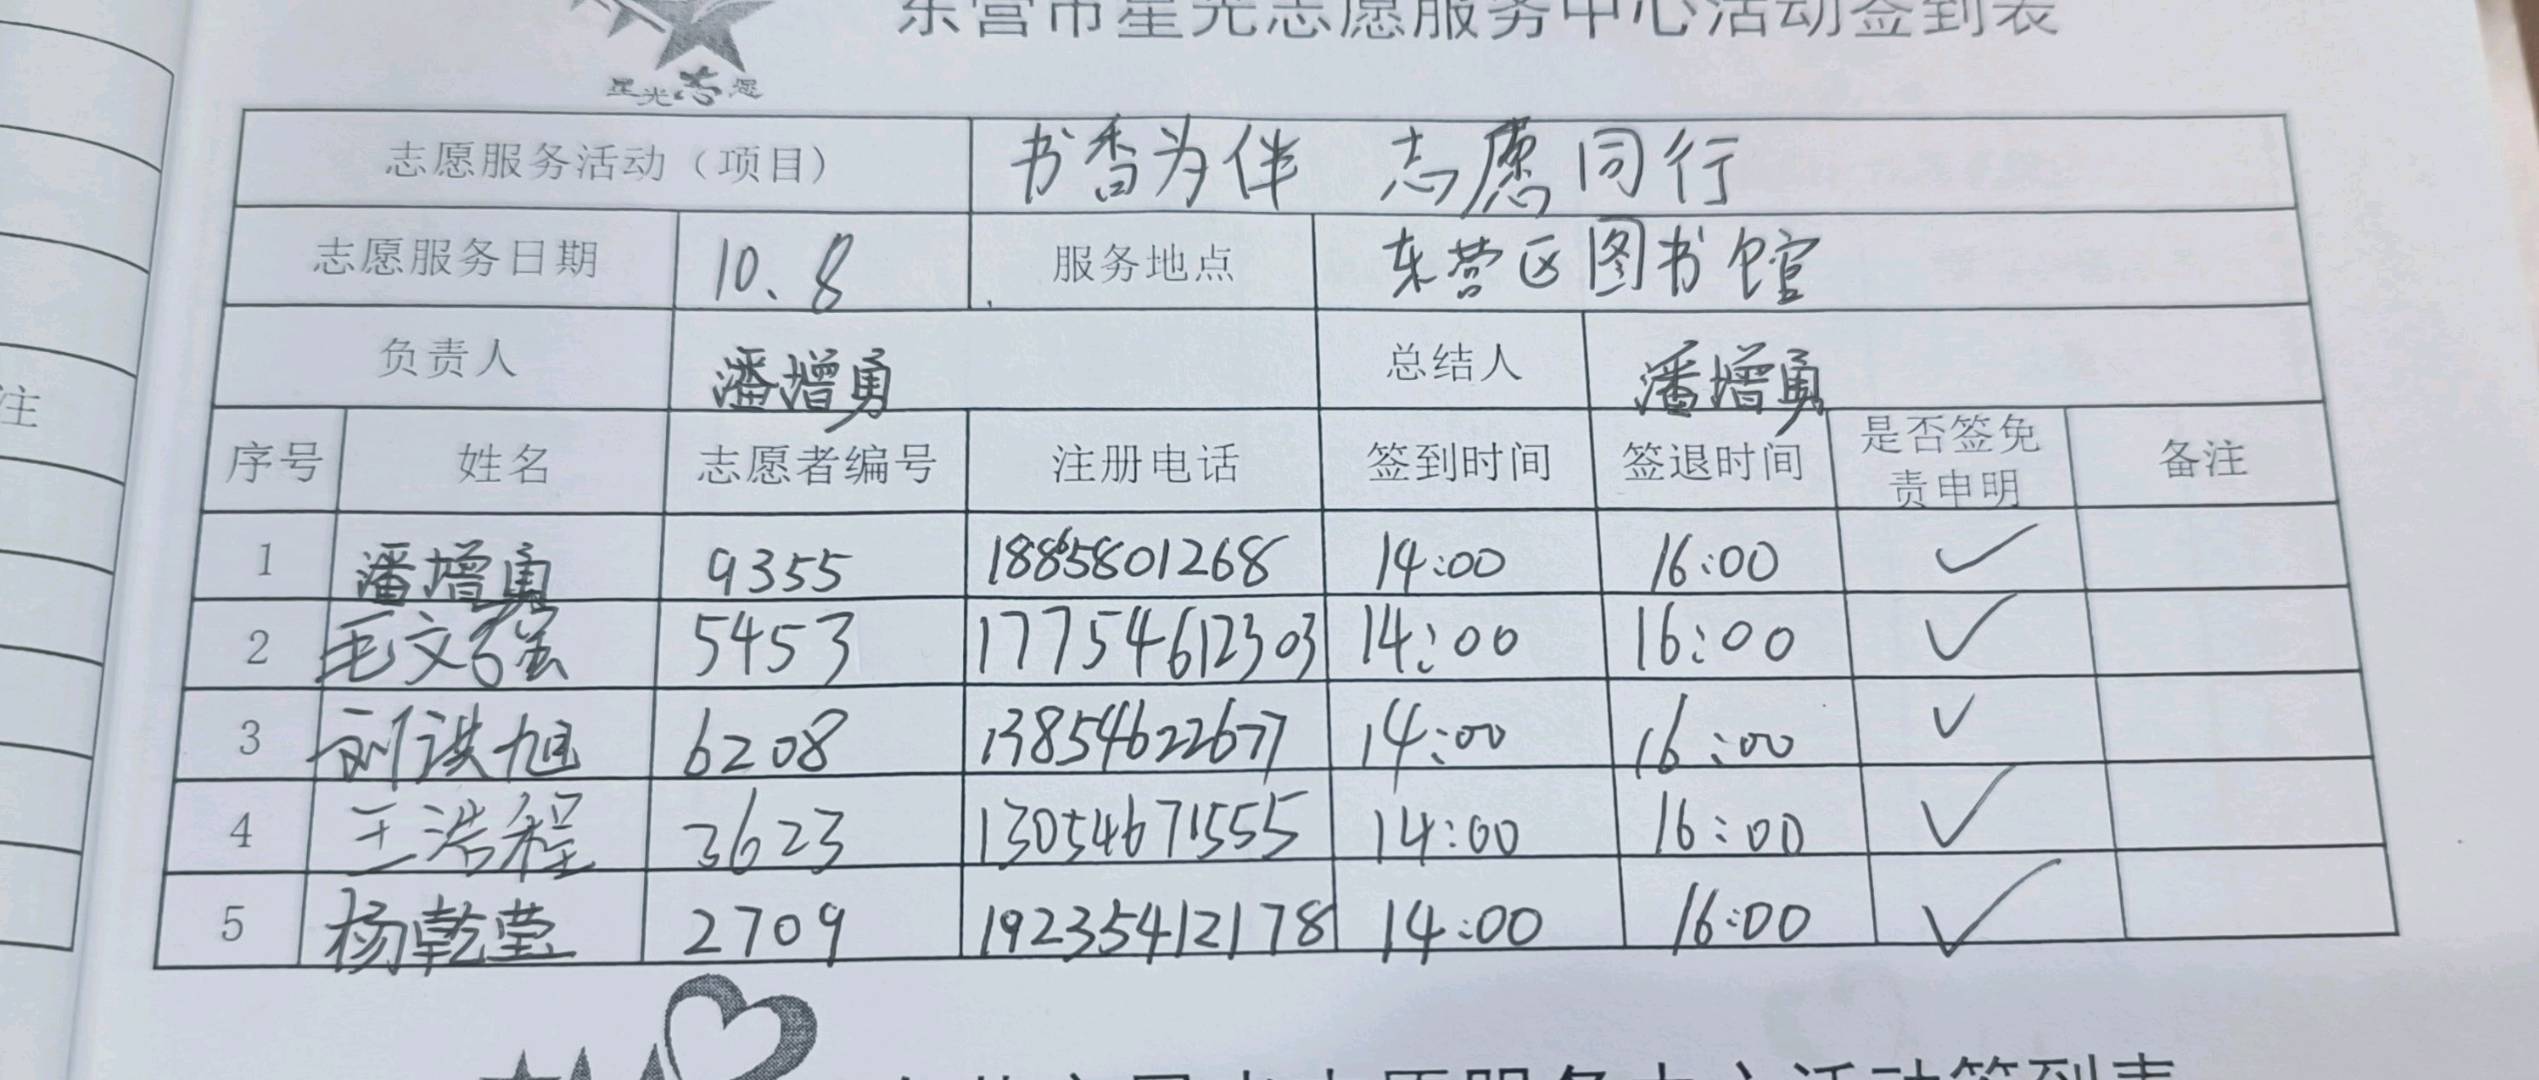 东营市星光志愿服务中心活动签到表
星光志愿
志愿服务活动（项目） 书香为伴 志愿同行
志愿服务日期 10.8 服务地点 东营区图书馆
负责人 潘增勇 总结人 潘增勇
注
序号 姓名 志愿者编号 注册电话 签到时间 签退时间 是否签免责申明 备注
1 潘增勇 9355 18865801268 14:00 16:00 ✓
2 毛文 5453 17754612303 14:00 16:00 ✓
3 刘洪旭 6208 13854622677 14:00 16:00 ✓
4 王浩程 3623 13054671555 14:00 16:00 ✓
5 杨乾莹 2709 19235412178 14:00 16:00 ✓
东营市星光志愿服务中心活动签到表